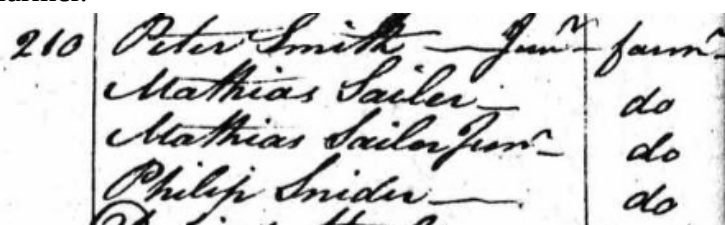 210 Peter Smith — Junr farmr
Mathias Sailer — do
Mathias Sailer Junr do
Philip Snider — do